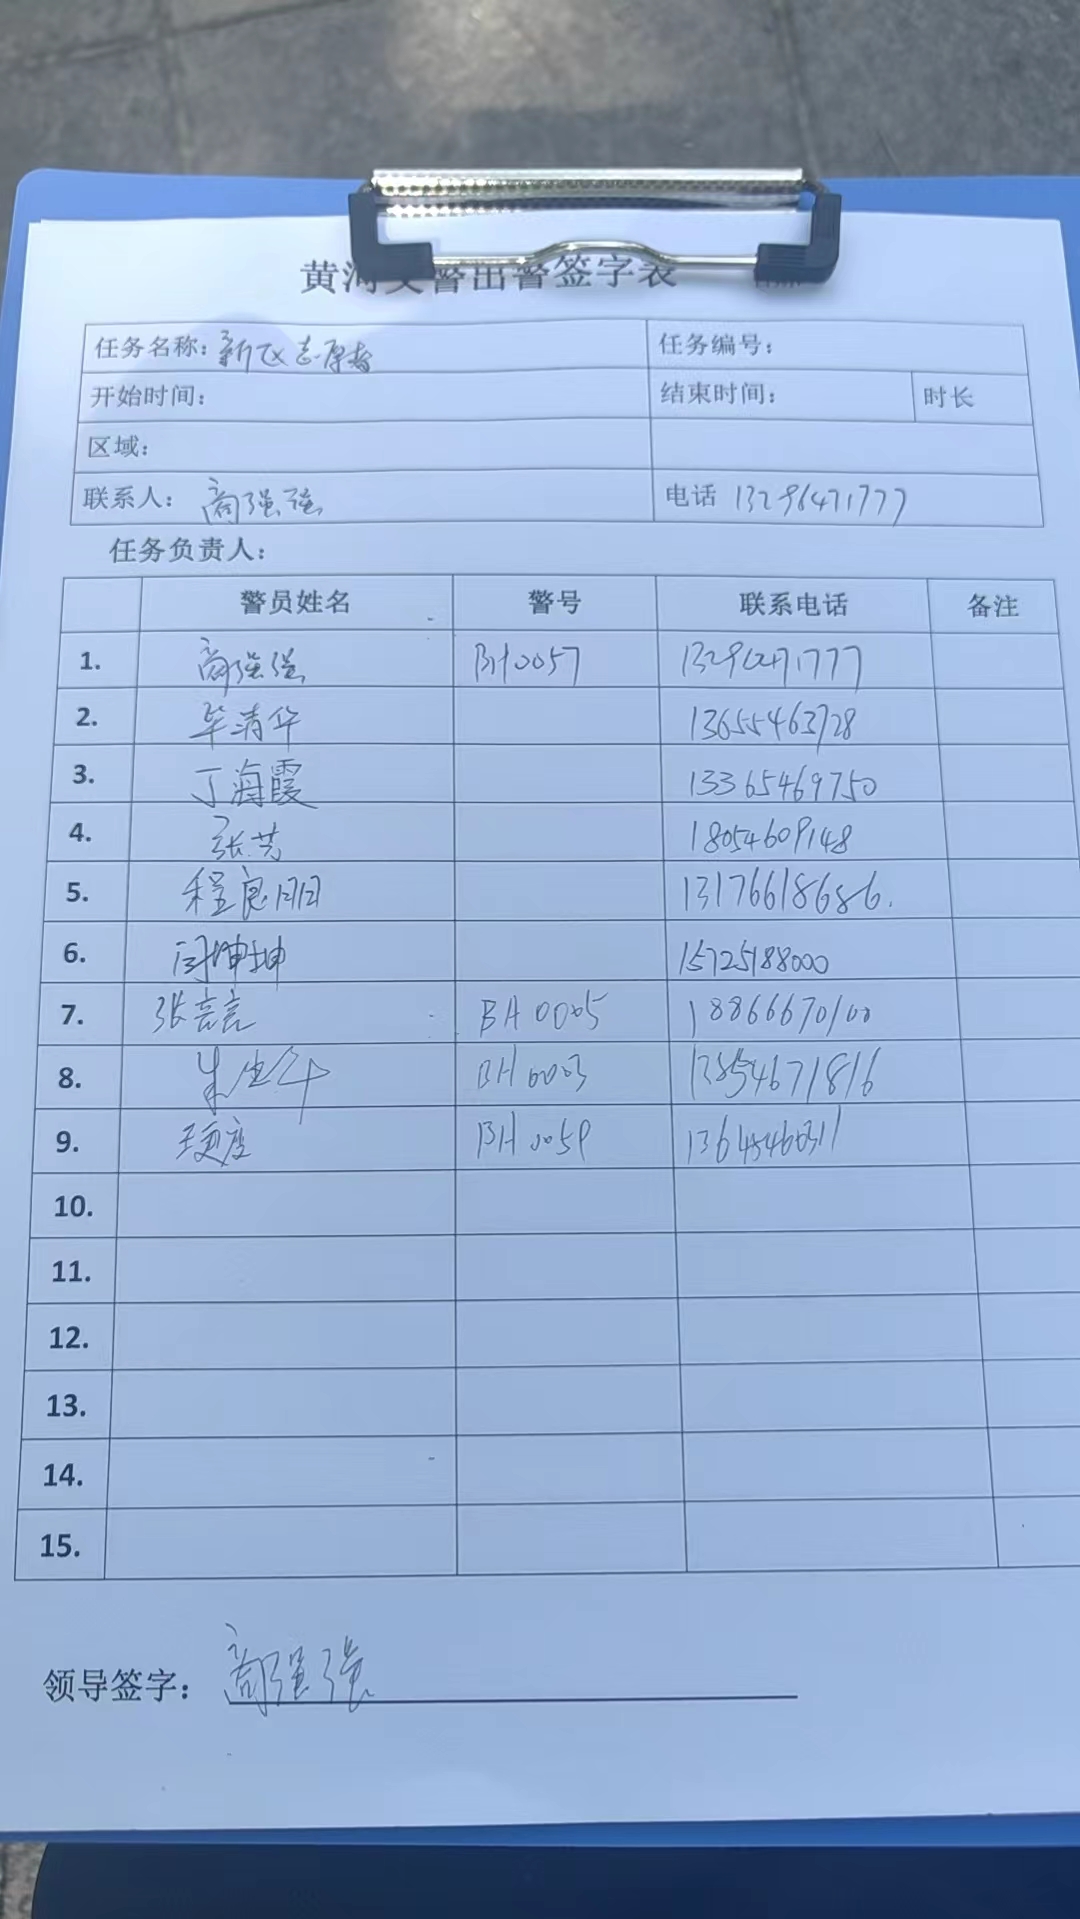 黄河交警出警签字表
任务名称：新区志愿者 任务编号：
开始时间： 结束时间： 时长
区域：
联系人：商强强 电话 13296471777
任务负责人：
警员姓名 警号 联系电话 备注
1. 商强强 BH0057 13296471777
2. 毕清华 13655463728
3. 丁海霞 13365469750
4. 张芳 18054609148
5. 程良朋 13176618686.
6. 闫坤坤 15725188000
7. 张亮亮 BH0005 18866670100
8. BH0003 13854671816
9. BH0059
10.
11.
12.
13.
14.
15.
领导签字：商强强